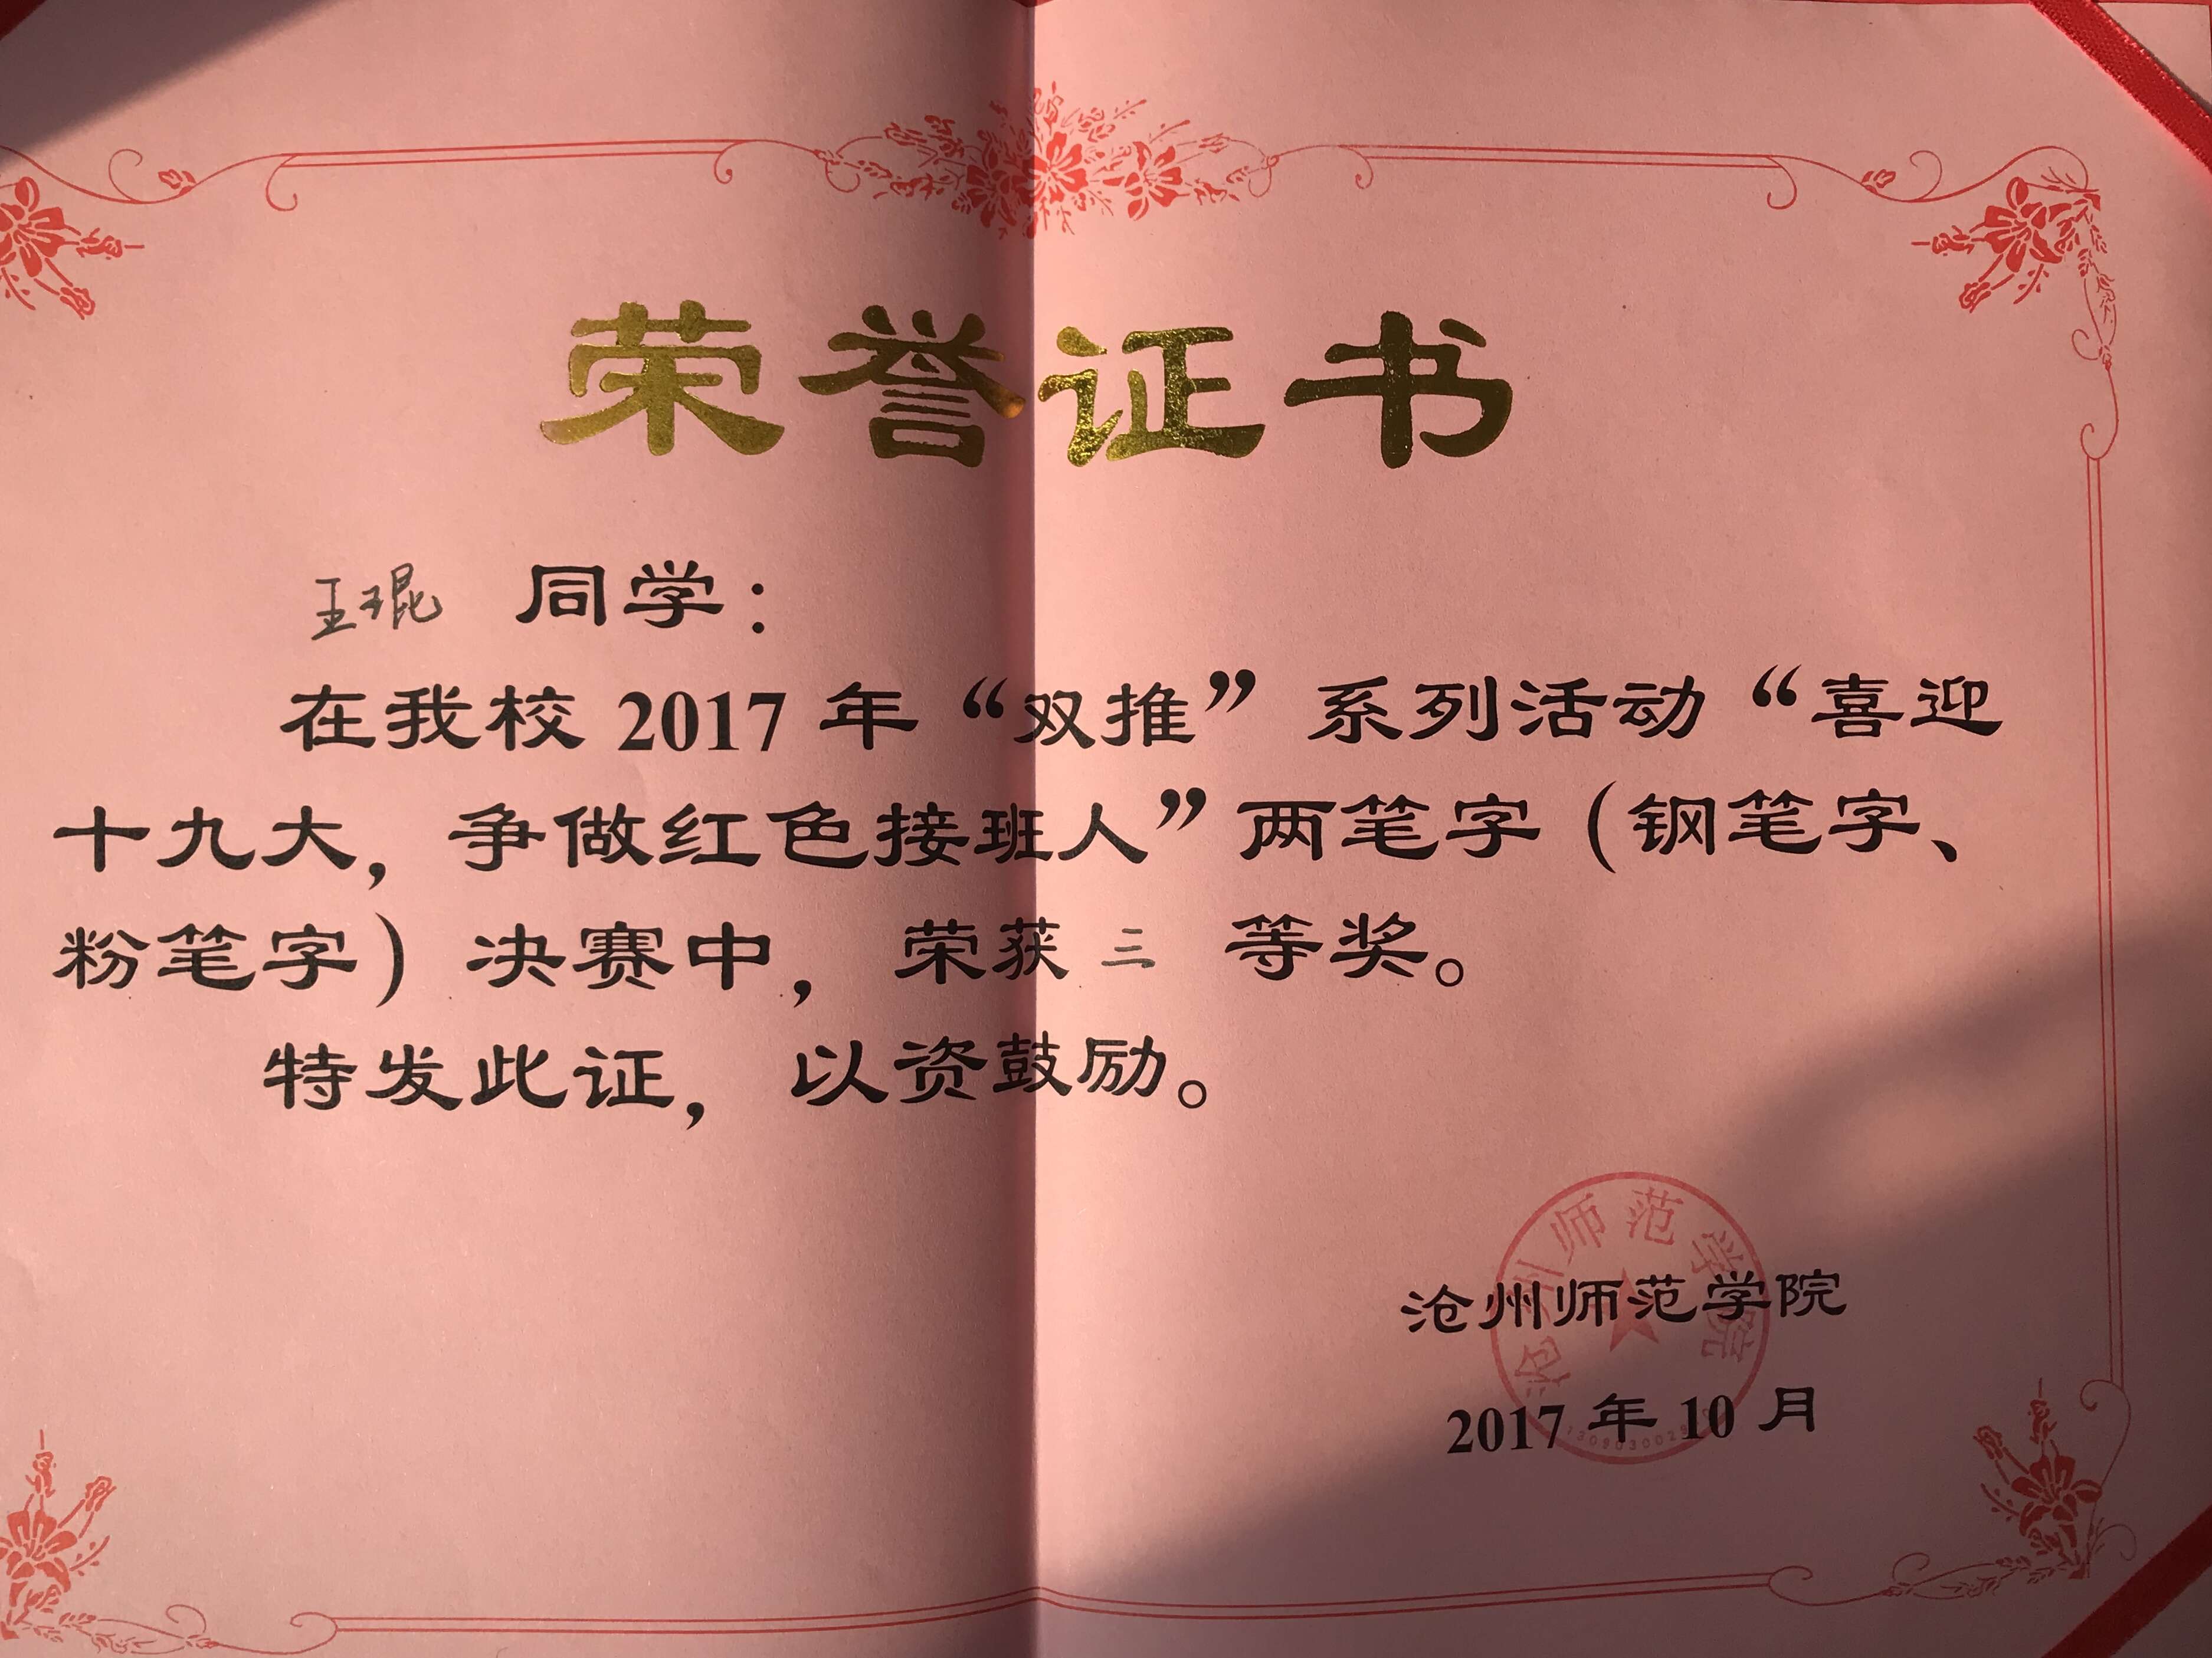 荣誉证书
王琨 同学：
在我校 2017 年“双推”系列活动“喜迎
十九大，争做红色接班人”两笔字（钢笔字、
粉笔字）决赛中，荣获 三 等奖。
特发此证，以资鼓励。
沧州师范学院
沧州师范学院
2017 年 10 月